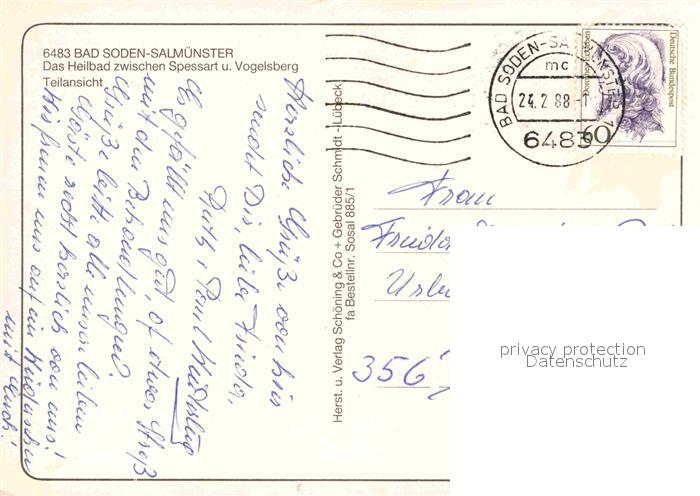 6483 BAD SODEN-SALMÜNSTER
Das Heilbad zwischen Spessart u. Vogelsberg
Teilansicht
Herzliche Grüße von hier
sendet Dir, liebe Frieda,
Ruth + Paul
Es gefällt uns gut, oft etwas Streß
mit den Behandlungen.
Grüße bitte alle unsere lieben
recht herzlich von uns!
Wir freuen uns auf ein Wiedersehen
mit Euch!
Herst. u. Verlag Schöning & Co + Gebrüder Schmidt - Lübeck
fa Bestellnr. Sosal 885/1
BAD SODEN-SALMÜNSTER 1
mc
24.2.88-1
6483
Deutsche Bundespost
60
Frau
Frieda
356
privacy protection
Datenschutz